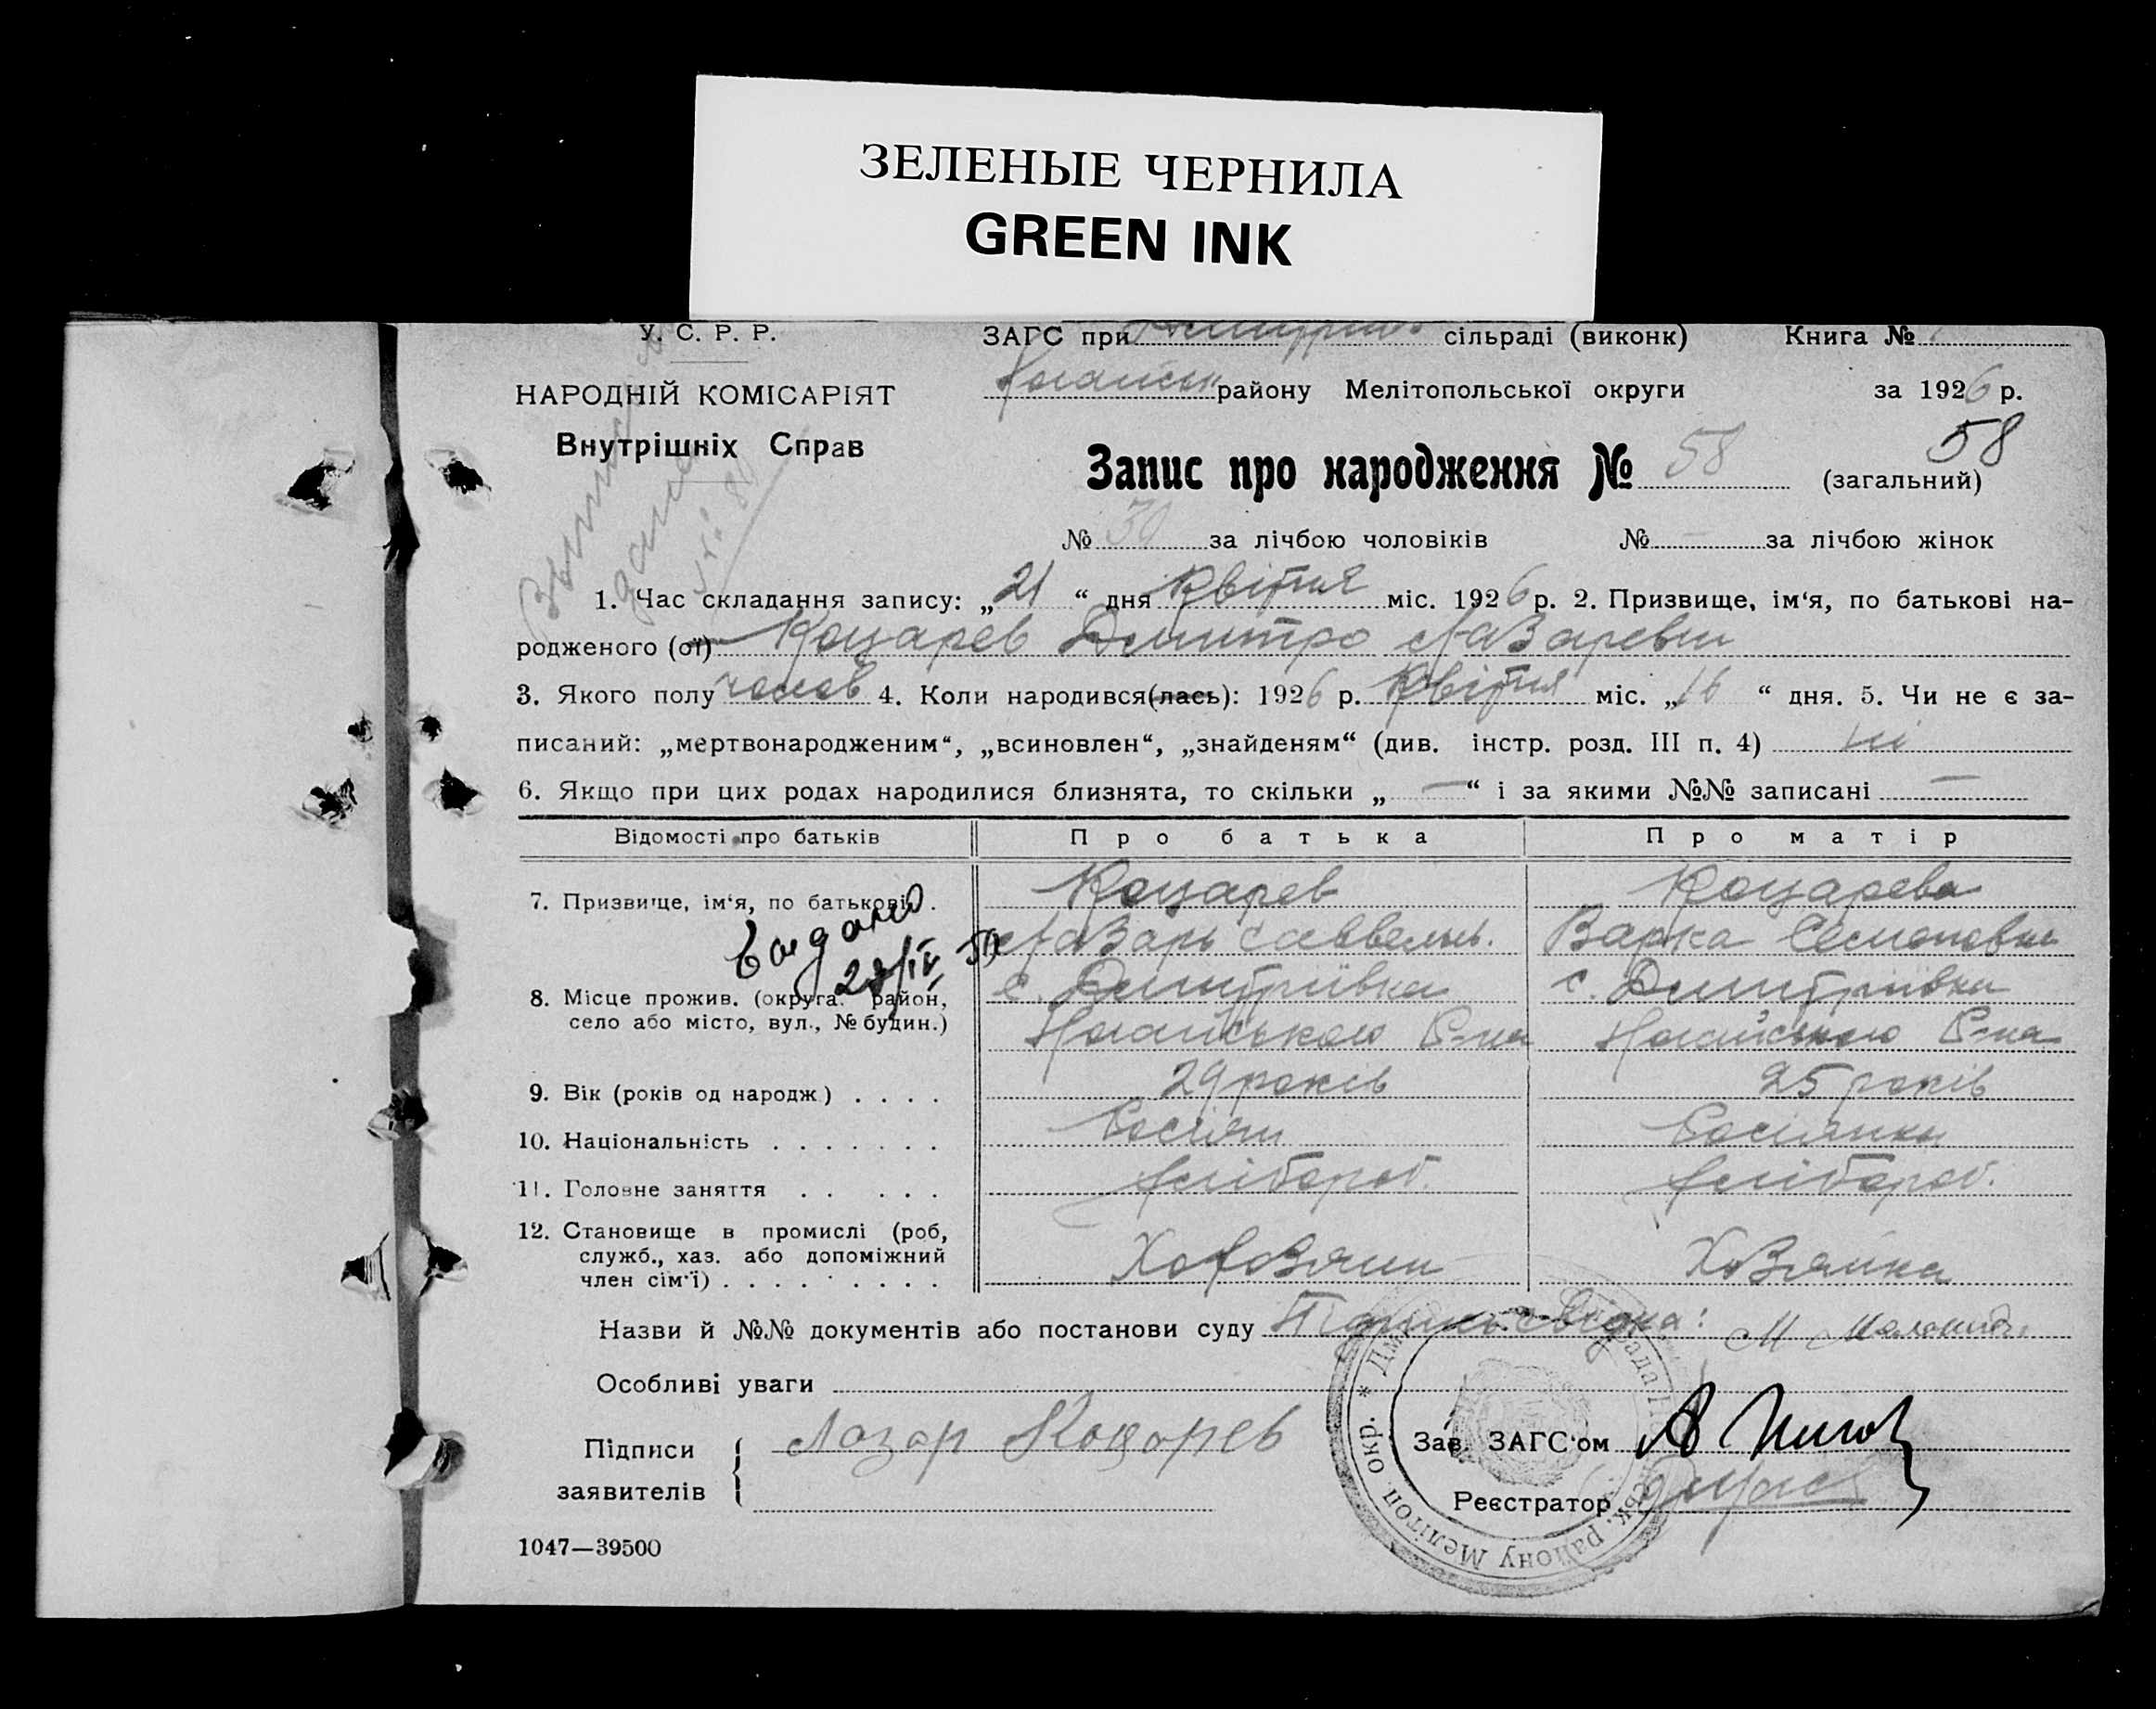 ЗЕЛЕНЫЕ ЧЕРНИЛА
GREEN INK
У. С. Р. Р.
ЗАГС при сільраді (виконк) Книга №
НАРОДНІЙ КОМІСАРІЯТ
району Мелітопольської округи за 1926 р.
Внутрішніх Справ
58
Запис про народження № 58 (загальний)
№ 30 за лічбою чоловіків № — за лічбою жінок
1. Час складання запису: „21“ дня Квітня міс. 1926 р. 2. Призвище, ім‘я, по батькові на-
родженого (ої) Коцарев Дмитро Лазаревич
3. Якого полу чолов 4. Коли народився(лась): 1926 р. Квітня міс. „16“ дня. 5. Чи не є за-
писаний: „мертвонародженим“, „всиновлен“, „знайденям“ (див. інстр. розд. III п. 4) ні
6. Якщо при цих родах народилися близнята, то скільки „—“ і за якими №№ записані —
Відомості про батьків Про батька Про матір
7. Призвище, ім‘я, по батькові . Коцарев Коцарева
Лазарь Савельев. Варка Семоновна
Видано
28/IV 50
8. Місце прожив. (округа. район, с. Дмитріївка с. Дмитріївка
село або місто, вул., № будин.) Ногайського Р-на Ногайського Р-на
9. Вік (років од народж) . . . . 29 років 25 років
10. Національність . . . . . . . Росіян Росіянка
11. Головне заняття . . . . . хлібороб. хлібороб.
12. Становище в промислі (роб,
служб., хаз. або допоміжний
член сім‘ї) . . . . . . . . . Хозяйка
Назви й №№ документів або постанови суду Підпись свідка: М
Особливі уваги
Підписи
заявителів
Лазар Коцарев
Зав. ЗАГС‘ом
Реєстратор
району Мелітоп. окр. * Дм
1047—39500